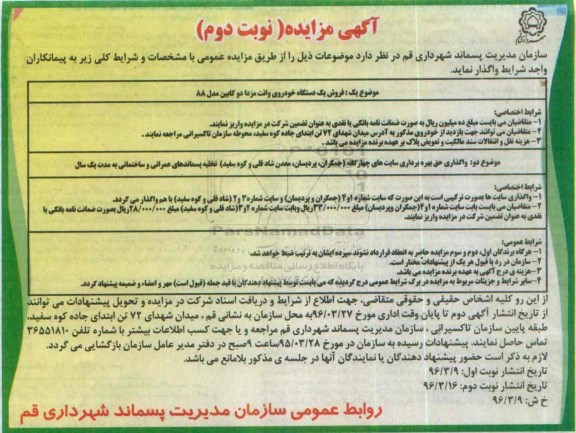 آگهی مزایده( نوبت دوم)
سازمان مدیریت پسماند شهرداری قم در نظر دارد موضوعات ذیل را از طریق مزایده عمومی با مشخصات و شرایط کلی زیر به پیمانکاران
واجد شرایط واگذار نماید.
موضوع یک : فروش یک دستگاه خودروی وانت مزدا دو کابین مدل ۸۸
شرایط اختصاصی:
۱- متقاضیان می بایست مبلغ ده میلیون ریال به صورت ضمانت نامه بانکی یا نقدی به عنوان تضمین شرکت در مزایده واریز نمایند.
۲- متقاضیان می توانند جهت بازدید از خودروی مذکور به آدرس میدان شهدای ۷۲ تن ابتدای جاده کوه سفید، محوطه سازمان تاکسیرانی مراجعه نمایند.
۳- هزینه نقل و انتقالات سند مالکیت و تعویض پلاک بر عهده برنده مزایده می باشد.
موضوع دو: واگذاری حق بهره برداری سایت های چهارگانه (جمکران، پردیسان، معدن شاد قلی و کوه سفید) تخلیه پسماندهای عمرانی و ساختمانی به مدت یک سال
شرایط اختصاصی:
۱- واگذاری سایت ها بصورت ترکیبی است به این صورت که سایت شماره ۱و۴ (جمکران و پردیسان) و سایت شماره ۳ و ۲ (شاد قلی و کوه سفید) با هم واگذار می گردد.
۲- متقاضیان می بایست بابت سایت شماره ۱و۴(جمکران وپردیسان) مبلغ ۳۳/۰۰۰/۰۰۰ ریال وبابت سایت شماره ۲و۳(شاد قلی و کوه سفید) مبلغ ۲۸/۰۰۰/۰۰۰ریال بصورت ضمانت نامه بانکی یا
نقدی به عنوان تضمین شرکت در مزایده واریز نمایند.
شرایط عمومی:
۱- هرگاه برندگان اول، دوم و سوم مزایده حاضر به انعقاد قرارداد نشوند سپرده ایشان به ترتیب ضبط خواهد شد.
۲- سازمان در رد یا قبول هر یک از پیشنهادات مختار است.
۳- هزینه ی درج آگهی به عهده برنده مزایده می باشد.
۴- سایر شرایط و جزئیات مربوط به مزایده در برگ شرایط عمومی درج گردیده که می بایست توسط پیشنهاد دهندگان با قید جمله (قبول است) مهر و امضاء و ضمیمه پیشنهاد گردد.
از این رو کلیه اشخاص حقیقی و حقوقی متقاضی، جهت اطلاع از شرایط و دریافت اسناد شرکت در مزایده و تحویل پیشنهادات می توانند
از تاریخ انتشار آگهی دوم تا پایان وقت اداری مورخ ۹۶/۰۳/۲۷ به محل سازمان به نشانی قم ، میدان شهدای ۷۲ تن ابتدای جاده کوه سفید،
طبقه پایین سازمان تاکسیرانی ، سازمان مدیریت پسماند شهرداری قم مراجعه و یا جهت کسب اطلاعات بیشتر با شماره تلفن ۳۶۵۵۱۸۱۰
تماس حاصل نمایند. پیشنهادات رسیده به سازمان در مورخ ۹۵/۰۳/۲۸ساعت ۹صبح در دفتر مدیر عامل سازمان بازگشایی می گردد.
لازم به ذکر است حضور پیشنهاد دهندگان یا نمایندگان آنها در جلسه ی مذکور بلامانع می باشد.
تاریخ انتشار نوبت اول: ۹۶/۳/۹
تاریخ انتشار نوبت دوم: ۹۶/۳/۱۶
خ ش: ۹۶/۳/۹
روابط عمومی سازمان مدیریت پسماند شهرداری قم
ParsNamadData
پایگاه اطلاع رسانی مناقصه و مزایده